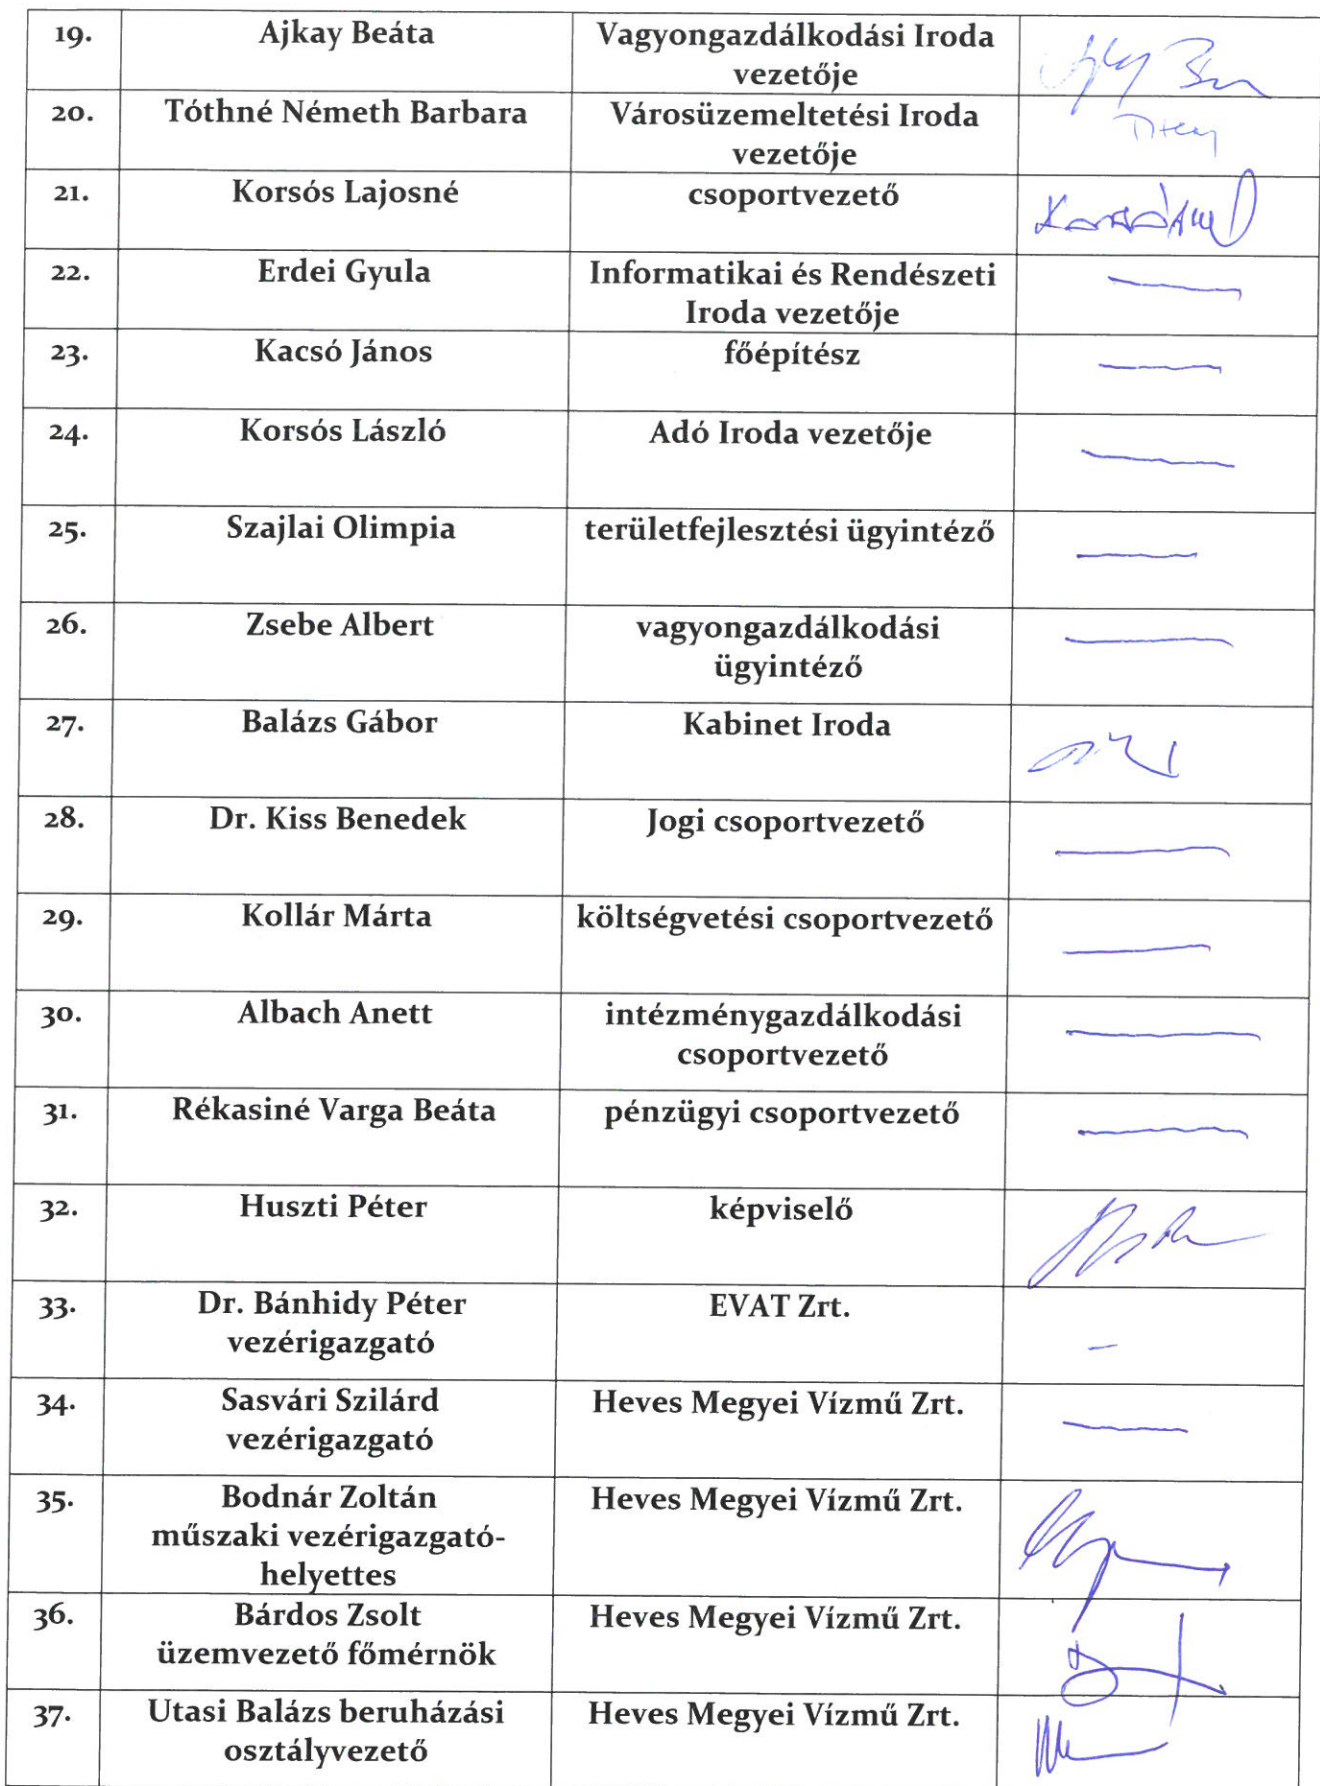 19. Ajkay Beáta Vagyongazdálkodási Iroda
vezetője
20. Tóthné Németh Barbara Városüzemeltetési Iroda
vezetője
21. Korsós Lajosné csoportvezető
22. Erdei Gyula Informatikai és Rendészeti
Iroda vezetője
23. Kacsó János főépítész
24. Korsós László Adó Iroda vezetője
25. Szajlai Olimpia területfejlesztési ügyintéző
26. Zsebe Albert vagyongazdálkodási
ügyintéző
27. Balázs Gábor Kabinet Iroda
28. Dr. Kiss Benedek Jogi csoportvezető
29. Kollár Márta költségvetési csoportvezető
30. Albach Anett intézménygazdálkodási
csoportvezető
31. Rékasiné Varga Beáta pénzügyi csoportvezető
32. Huszti Péter képviselő
33. Dr. Bánhidy Péter EVAT Zrt.
vezérigazgató
34. Sasvári Szilárd Heves Megyei Vízmű Zrt.
vezérigazgató
35. Bodnár Zoltán Heves Megyei Vízmű Zrt.
műszaki vezérigazgató-
helyettes
36. Bárdos Zsolt Heves Megyei Vízmű Zrt.
üzemvezető főmérnök
37. Utasi Balázs beruházási Heves Megyei Vízmű Zrt.
osztályvezető